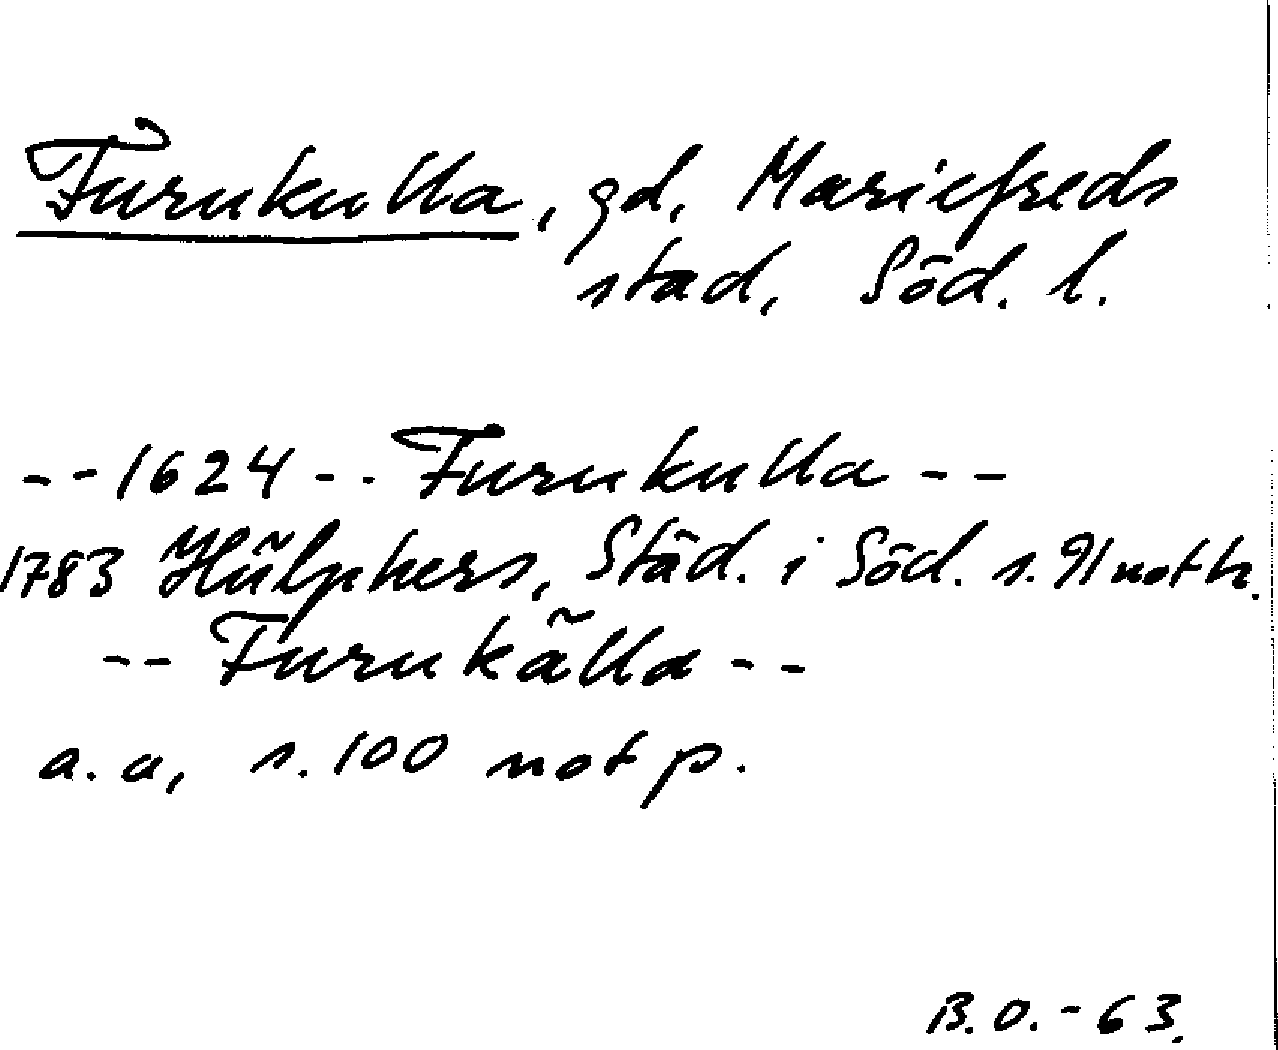 Furukulla, gd, Mariefreds
stad, Söd. l.
--1624-- Furukulla--
1783 Hülphers, Städ. i Söd. s. 91 not h.
-- Furukälla--
a. a, s. 100 not p.
B.O.-63.